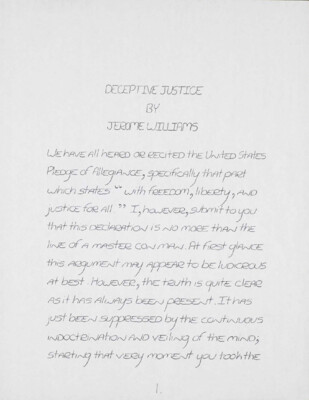 DECEPTIVE JUSTICE
BY
JEROME WILLIAMS
WE HAVE All HEARD OR RECITED the UNITED STATES
Pledge of Allegiance, specifically that part
which states "with freedom, liberty, and
justice for all." I, however, submit to you
that this declaration is no more than the
line of a master con man. At first glance
this argument may appear to be ludicrous
at best. However, the truth is quite clear
as it has always been present. It has
just been suppressed by the continuous
indoctrination and veiling of the mind;
starting that very moment you took the
1.